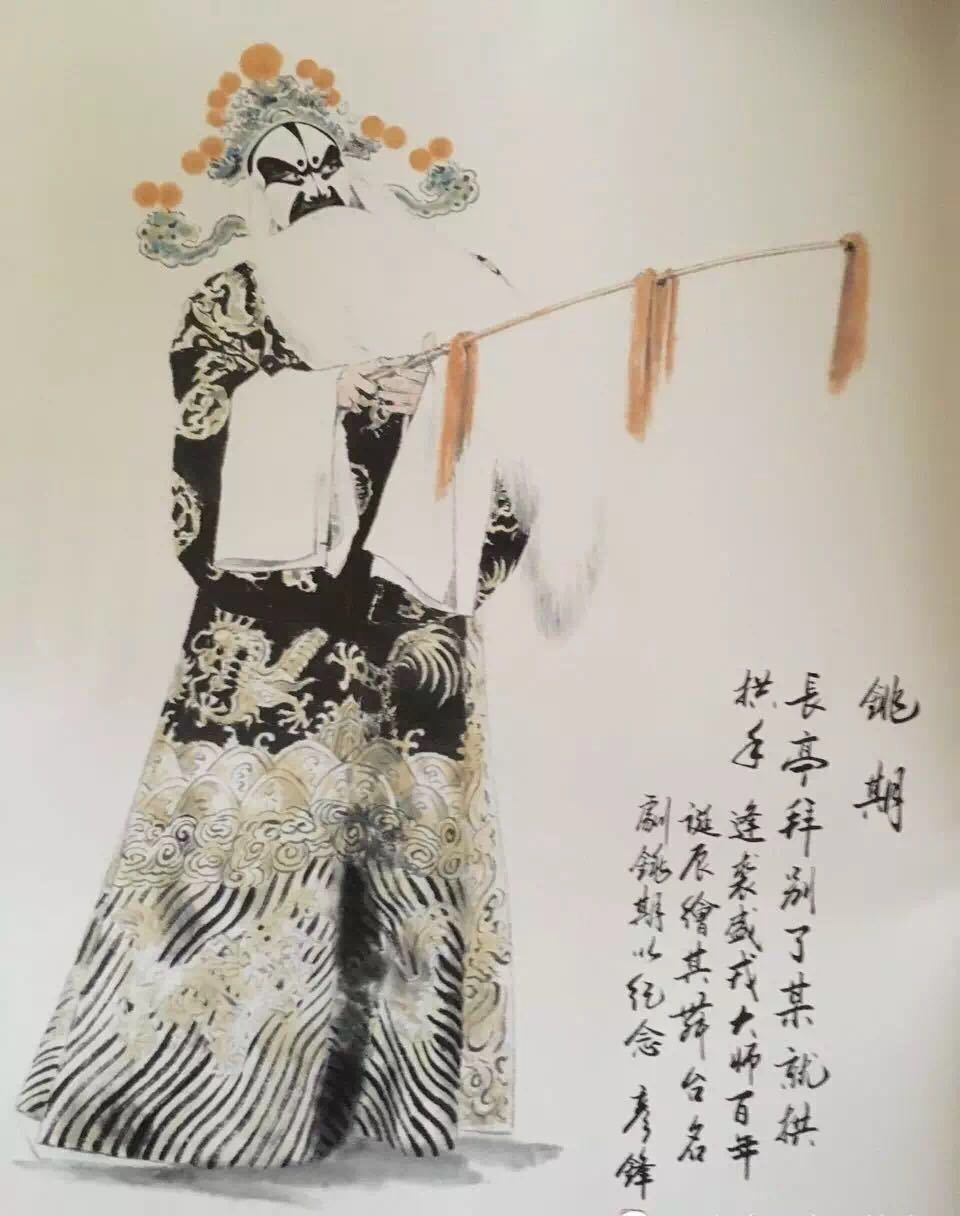 銚期
長亭拜别了某就拱
拱手 逢裘盛戎大师百年
诞辰繪其舞台名
劇銚期以纪念 彦鋒